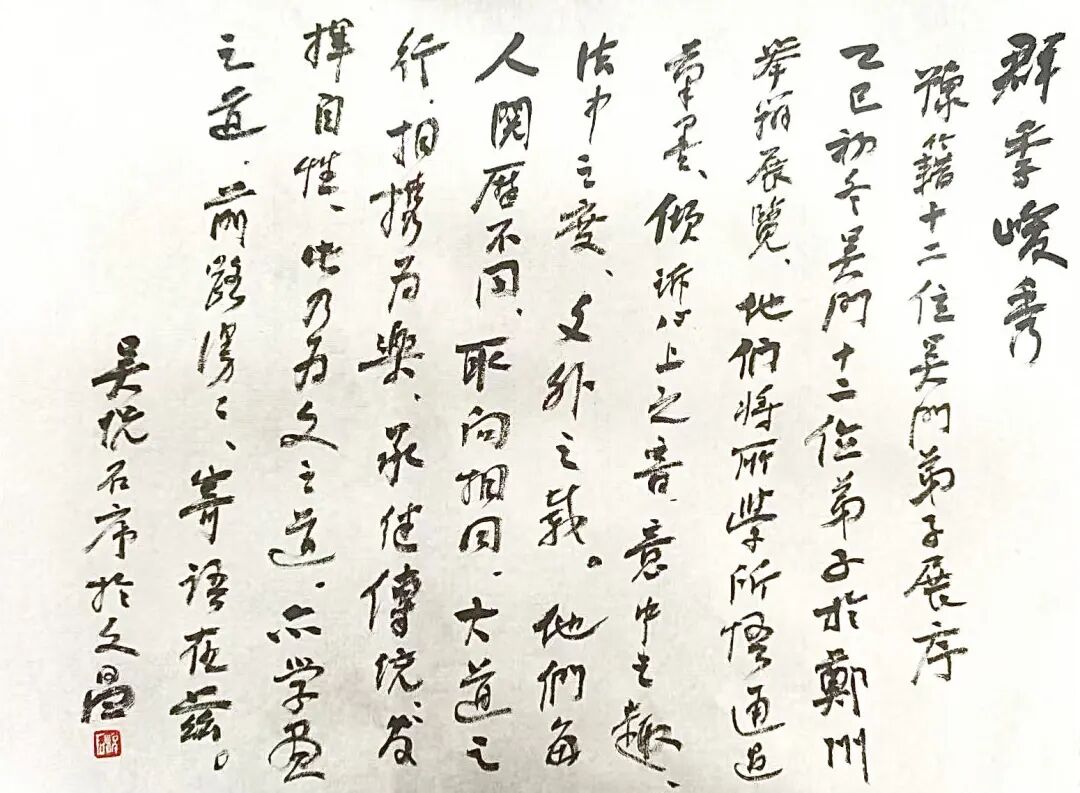 群季峻秀
豫籍十二位吴門弟子展序
乙巳初冬吴門十二位弟子於鄭州
举辦展覽、他们将所学所悟通過
筆墨、倾诉心上之音、意中之趣、
法中之度、文外之载。他們每
人閲历不同、取向相同、大道之
行、相携为樂、承继傳统、发
挥自性、此乃为文之道、亦学画
之道、前路漫〻、寄语在兹。
吴悦石序於文昌